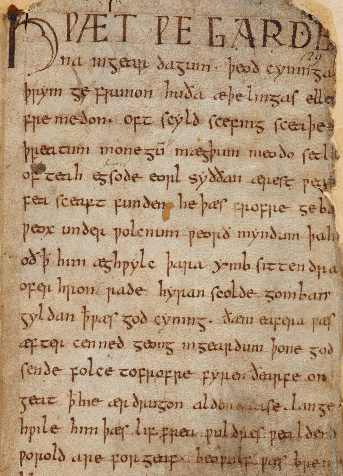 HǷÆT ǷE GARDE
na in gear dagum . þeod cyninga
þrym ge frunon huða æþelingas elle
fre medon . oft scyld scefing sceaþe
þreatum monegū mægþum meodo setla
of teah egsode eorl syððan ærest ƿear
fea sceaft funden he þæs frofre geba
ƿeox under ƿolcnum ƿeorð myndum þah
oð ꝥ him æghƿylc þara ymb sittendra
ofer hron rade hyran scolde gomban
gyldan ꝥ ƿæs god cyning . ðæm eafera ƿæs
æfter cenned geong in geardum þone god
sende folce tofrofre fyren ðearfe on
geat ꝥ hie ær drugon aldor ase . lange
hƿile him þæs lif frea ƿuldres ƿealdend
ƿorold are for geaf . beoƿulf ƿæs breme